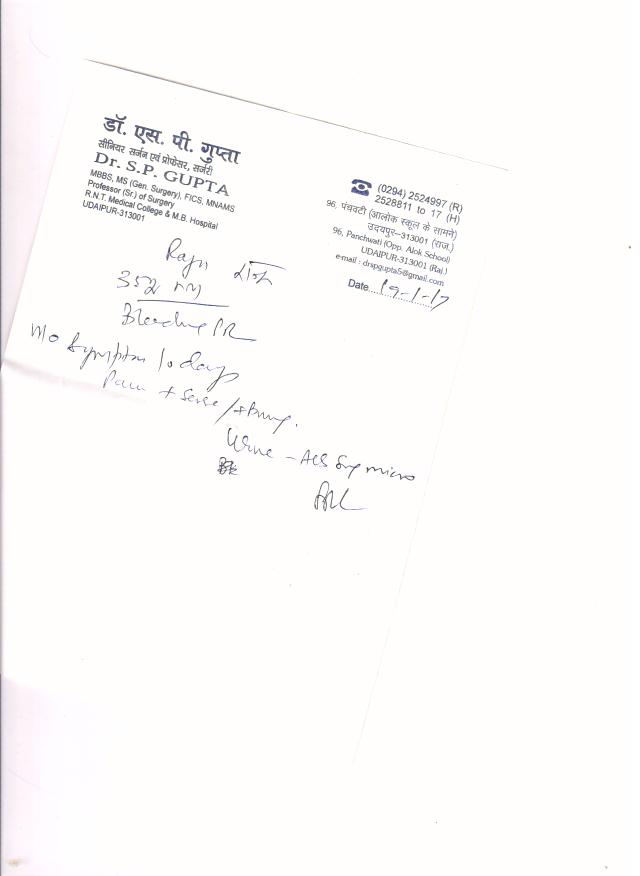 डॉ. एस. पी. गुप्ता
सीनियर सर्जन एवं प्रोफेसर, सर्जरी
Dr. S.P. GUPTA
MBBS, MS (Gen. Surgery), FICS, MNAMS
Professor (Sr.) of Surgery
R.N.T. Medical College & M.B. Hospital
UDAIPUR-313001
(0294) 2524997 (R)
2528811 to 17 (H)
96, पंचवटी (आलोक स्कूल के सामने)
उदयपुर–313001 (राज.)
96, Panchwati (Opp. Alok School)
UDAIPUR-313001 (Raj.)
e-mail : drspgupta5@gmail.com
Date 19-1-17
Raju
Bleeding PR
Symptom 10 days
Pain +
Urine - Alb Sug micro